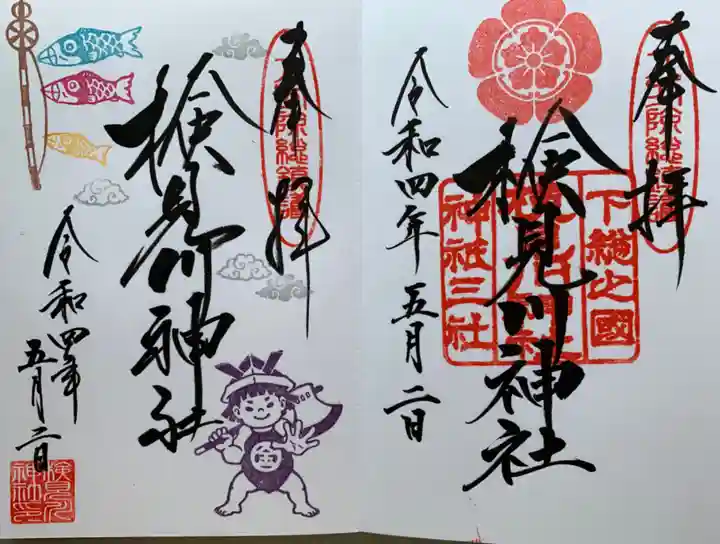 奉拝
検見川神社
下總之國
神祇三社
令和四年五月二日
奉拝
検見川神社
金
令和四年
五月二日
検見川
神社印